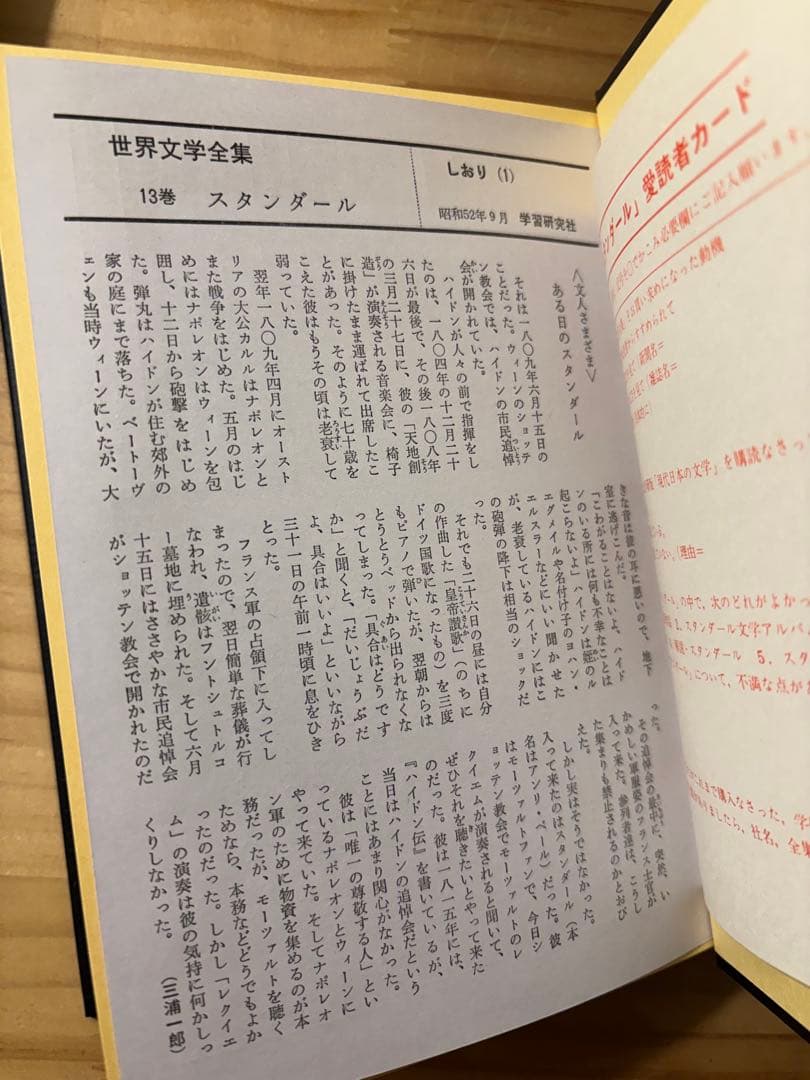 世界文学全集
13巻 スタンダール
しおり (1)
昭和52年9月 学習研究社
〈文人さまざま〉
ある日のスタンダール
それは一八〇九年六月十五日の
ことだった。ウィーンのショッテ
ン教会では、ハイドンの市民追悼
会が開かれていた。
ハイドンが人々の前で指揮をし
たのは、一八〇四年の十二月二十
六日が最後で、その後一八〇八年
の三月二十七日に、彼の「天地創
造」が演奏される音楽会に、椅子
に掛けたまま運ばれて出席したこ
とがあった。そのように七十歳を
こえた彼はもうその頃は老衰して
弱っていた。
翌年一八〇九年四月にオースト
リアの大公カルルはナポレオンと
また戦争をはじめた。五月のはじ
めにはナポレオンはウィーンを包
囲し、十二日から砲撃をはじめ
た。弾丸はハイドンが住む郊外の
家の庭にまで落ちた。ベートーヴ
ェンも当時ウィーンにいたが、大
きな音は彼の耳に悪いので、地下
室に逃げこんだ。
「こわがることはないよ、ハイド
ンのいる所には何も不幸なことは
起こらないよ」ハイドンは姪のル
エグメイルや名付け子のヨハン・
エルスラーなどにいい聞かせた
が、老衰しているハイドンにはこ
の砲弾の降下は相当のショックだ
った。
それでも二十六日の昼には自分
の作曲した「皇帝讃歌」(のちに
ドイツ国歌になったもの)を三度
もピアノで弾いたが、翌朝からは
とうとうベッドから出られなくな
ってしまった。「具合はどうです
か」と聞くと、「だいじょうぶだ
よ、具合はいいよ」といいながら
三十一日の午前一時頃に息をひき
とった。
フランス軍の占領下に入ってし
まったので、翌日簡単な葬儀が行
なわれ、遺骸はフントシュトルコ
ー墓地に埋められた。そして六月
十五日にはささやかな市民追悼会
がショッテン教会で開かれたのだ
った。
その追悼会の最中に、突然、い
かめしい軍服姿のフランス士官が
入って来た。参列者達は、こうし
た集まりも禁止されるのかとおび
えた。
しかし実はそうではなかった。
入って来たのはスタンダール(本
名はアンリ・ベール)だった。彼
はモーツァルトファンで、今日シ
ョッテン教会でモーツァルトのレ
クイエムが演奏されると聞いて、
ぜひそれを聴きたいとやって来た
のだった。彼は一八一五年には、
『ハイドン伝』を書いているが、
当日はハイドンの追悼会だという
ことにはあまり関心がなかった。
彼は「唯一の尊敬する人」とい
っているナポレオンとウィーンに
やって来ていた。そしてナポレオ
ン軍のために物資を集めるのが本
務だったが、モーツァルトを聴く
ためなら、本務などどうでもよか
ったのだった。しかし「レクイエ
ム」の演奏は彼の気持に何かしっ
くりしなかった。
(三浦一郎)
ンダール」愛読者カード
でかこみ必要欄にご記入願います
お買い求めになった動機
すすめられて
新聞名=
(雑誌名=
「現代日本の文学」を購読なさっ
(理由=
の中で、次のどれがよかっ
1. スタンダール文学アルバム
・スタンダール 5. スタ
について、不満な点が
購入なさった、学
したら、社名、全集